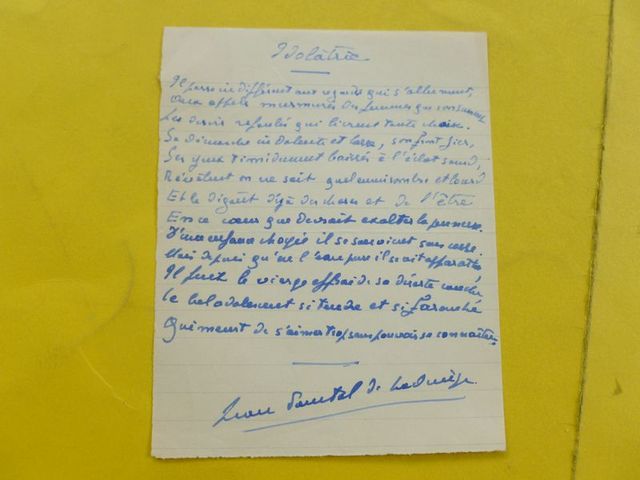 Idolâtrie
Il passe indifférent aux regards qui s'allument,
Aux appels murmurés des femmes que consument
Les désirs refoulés qui livrent toute chair.
Sa démarche indolente et lasse, son front fier,
Ses yeux timidement baissés à l'éclat sourd,
Révèlent on ne sait quel ennui sombre et lourd
Et le dégoût déjà des choses et de l'être
En ce cœur que devrait exalter la jeunesse.
D'une enfance choyée il se souvient sans cesse.
Mais depuis qu'en l'eau pure il se vit apparaître,
Il fuit la vierge offrande sa déserte couche
Le bel adolescent si tendre et si farouche
Qui meurt de s'aimer trop sans pouvoir se connaître.
Jean de